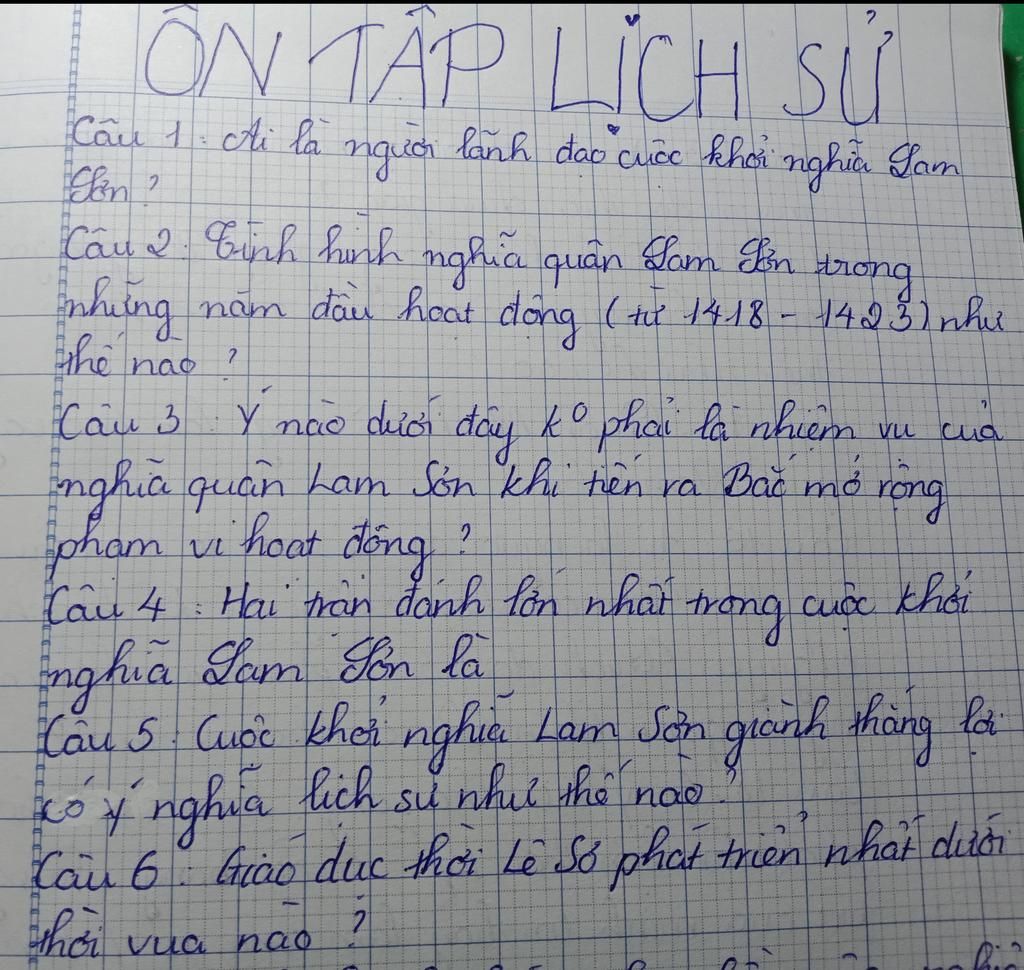 ÔN TẬP LỊCH SỬ
Câu 1: Ai là người lãnh đạo cuộc khởi nghĩa Lam
Sơn ?
Câu 2: Tình hình nghĩa quân Lam Sơn trong
những năm đầu hoạt động (từ 1418 - 1423) như
thế nào ?
Câu 3: Ý nào dưới đây k⁰ phải là nhiệm vụ của
nghĩa quân Lam Sơn khi tiến ra Bắc mở rộng
phạm vi hoạt động ?
Câu 4: Hai trận đánh lớn nhất trong cuộc khởi
nghĩa Lam Sơn là
Câu 5: Cuộc khởi nghĩa Lam Sơn giành thắng lợi
có ý nghĩa lịch sử như thế nào?
Câu 6: Giáo dục thời Lê Sơ phát triển nhất dưới
thời vua nào ?